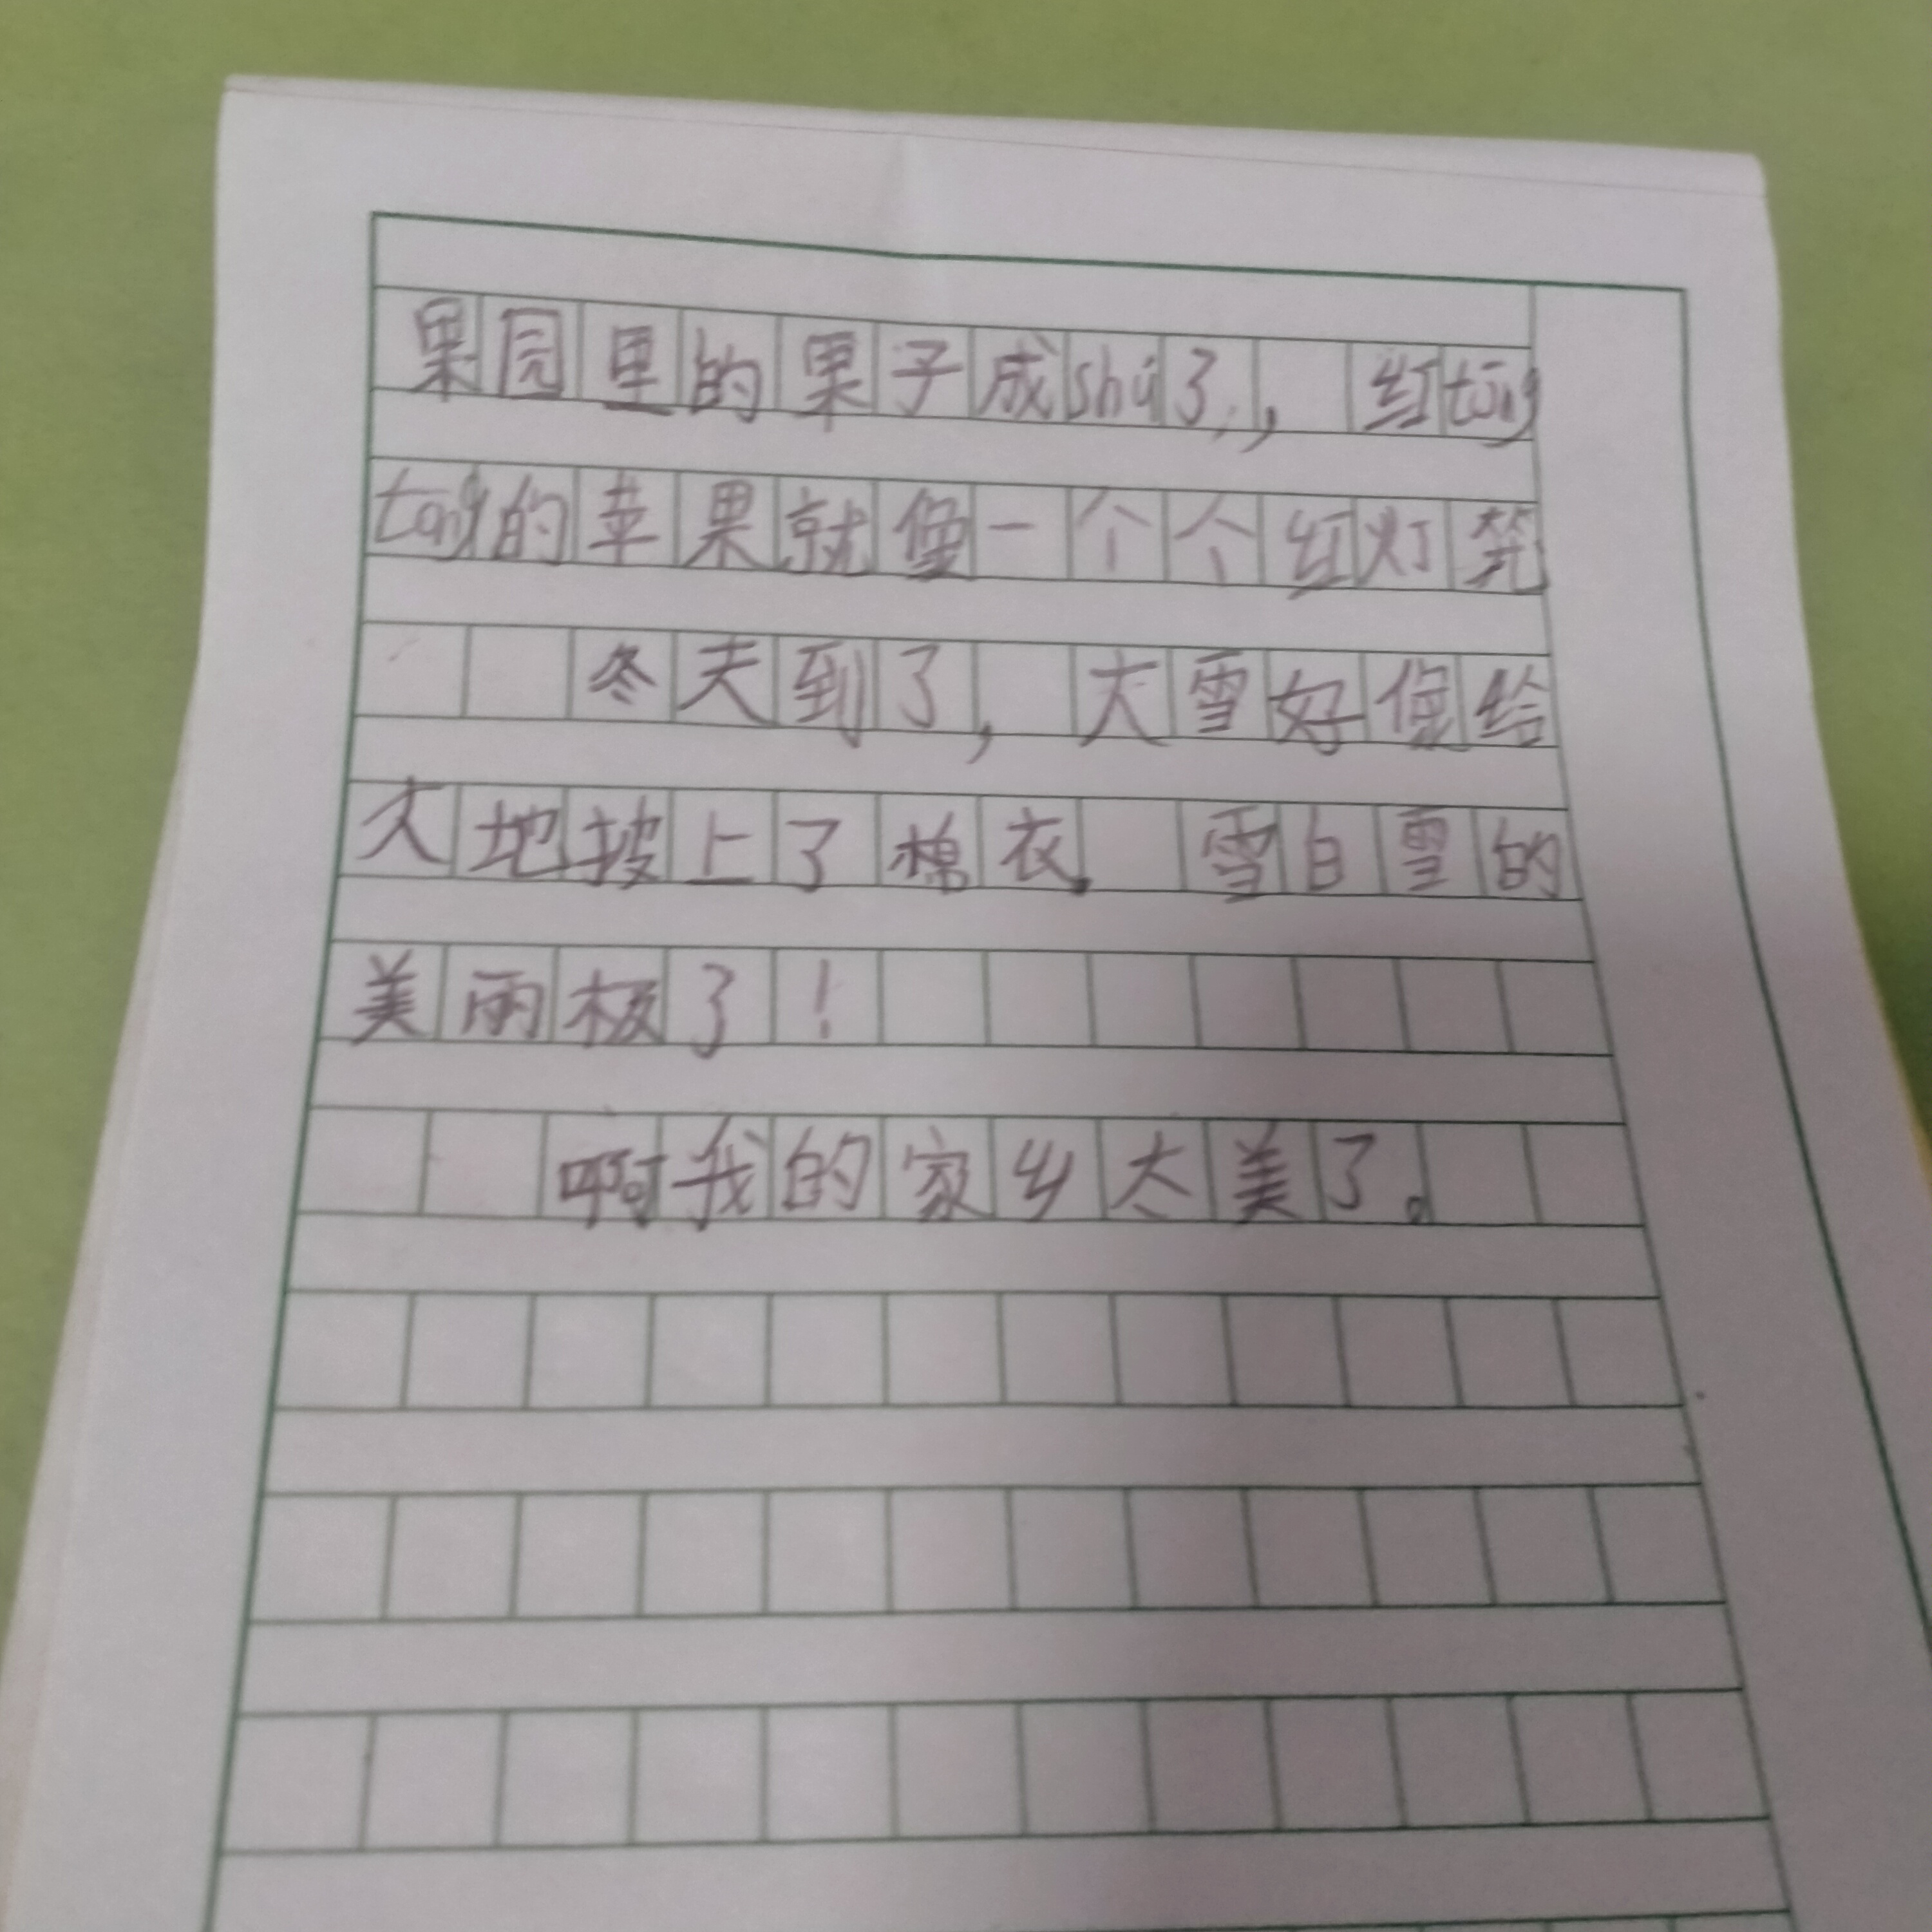 果园里的果子成shú了，红tōng
tong的苹果就像一个个红灯笼
冬天到了，大雪好像给
大地披上了棉衣。雪白雪的
美丽极了！
啊我的家乡太美了。